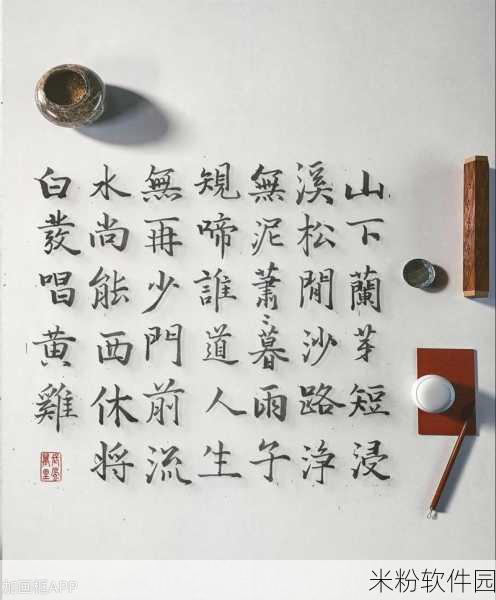 山下蘭芽短浸
溪松閒沙路淨
無泥蕭〻暮雨子
規啼誰道人生
無再少門前流
水尚能西休将
白發唱黄雞
加画框APP
米粉软件园